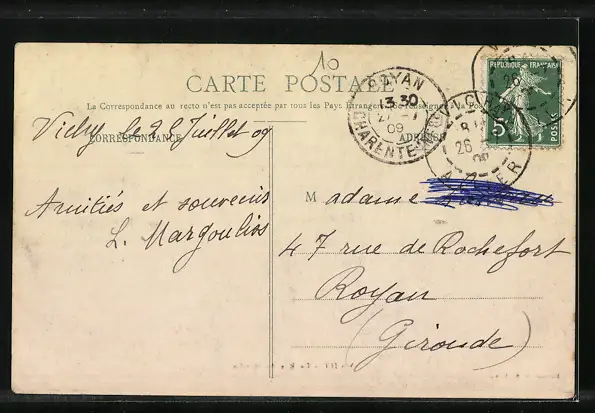 10
CARTE POSTALE
La Correspondance au recto n'est pas acceptée par tous les Pays Étrangers. Se renseigner à la Poste
CORRESPONDANCE
ADRESSE
Vichy le 26 Juillet 09
Amitiés et souvenirs
L. Margoulios
Madame
47 rue de Rochefort
Royan
(Gironde)
RÉPUBLIQUE FRANÇAISE
5
POSTES
ROYAN
13 30
27 - 7
09
CHARENTE-INFRE
26
09
ALLIER